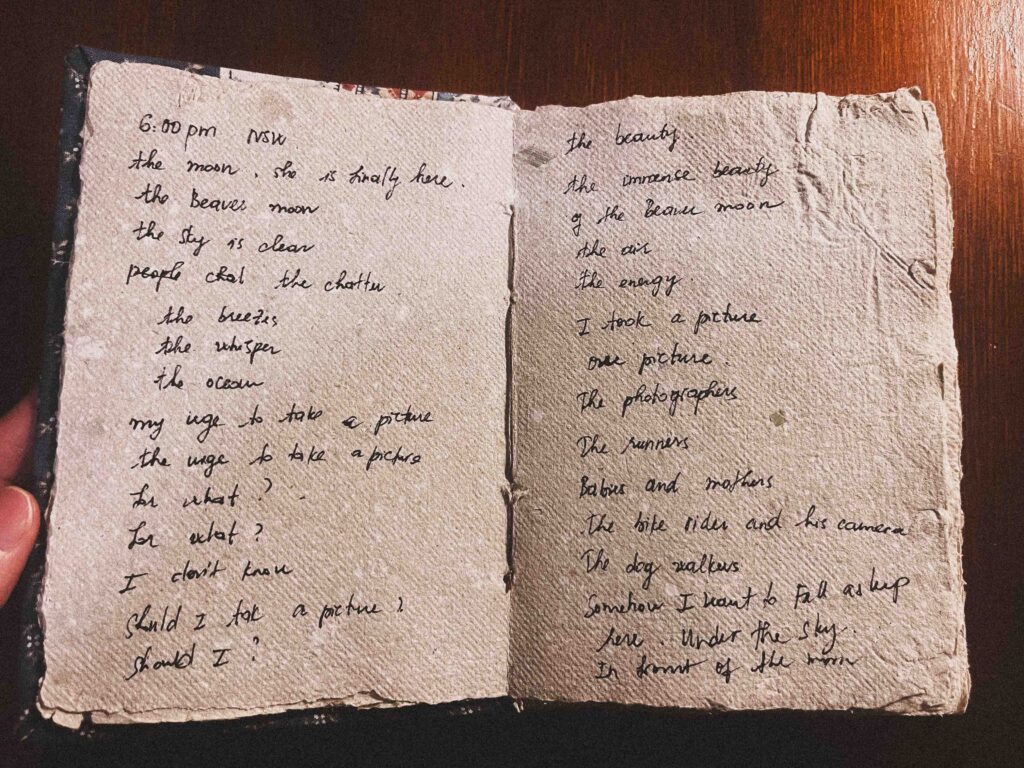 6:00pm NSW
the moon. she is finally here.
the Beaver moon
the sky is clear
people chat the chatter
the breezes
the whisper
the ocean
my urge to take a picture
the urge to take a picture
for what?
for what?
I don't know
should I tak a picture?
should I?
the beauty
the immense beauty
of the Beaver moon
the air
the energy.
I took a picture
one picture.
The photographers
The runners
Babies and mothers
The bike rider and his camera
The dog walkers
Somehow I want to fall asleep
here. Under the sky.
In front of the moon